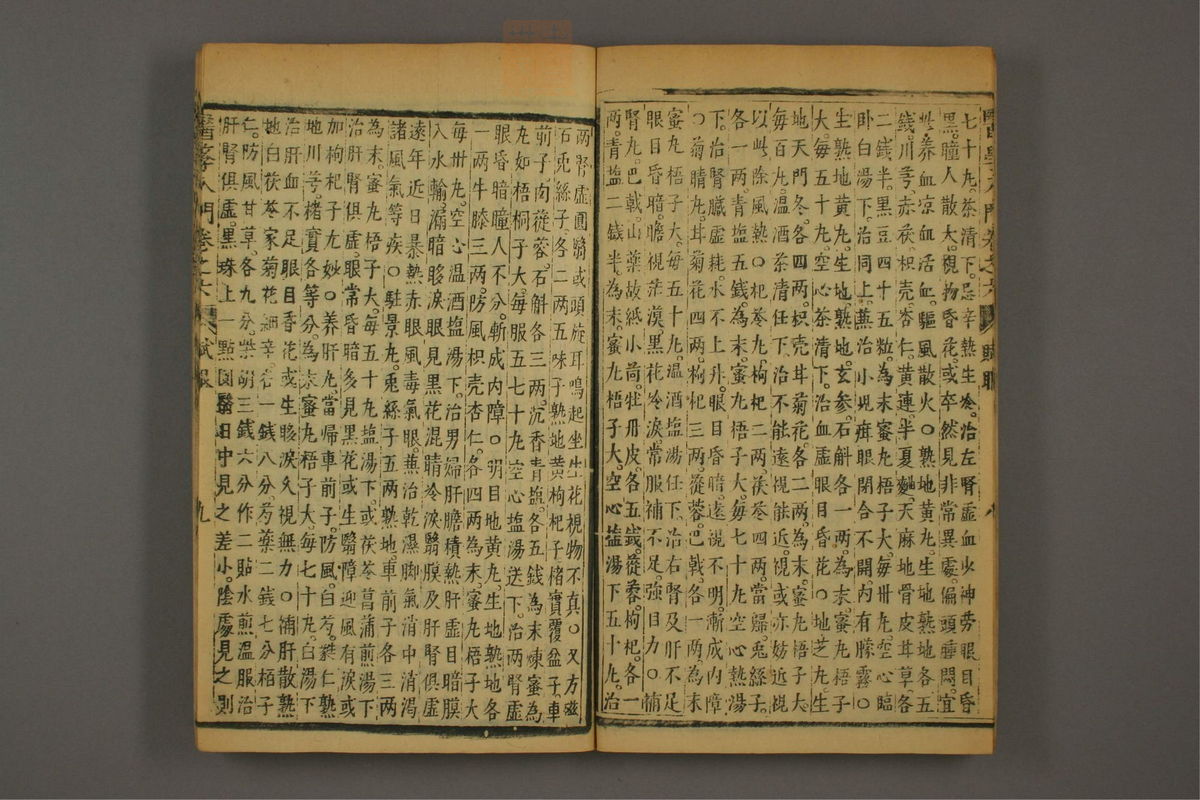 七十丸。茶清下。忌辛熱生冷。治左腎虛血少神勞眼目昏
黑。瞳人散大。視物昏花。或卒然見非常異處。偏頭腫悶。宜
此養血凉血活血。驅風散火〇熟地黃丸。生地熟地各五
錢。川芎赤茯枳壳杏仁。黃連。半夏麯。天麻地骨皮甘草各
二錢半。黑豆四十五粒。為末蜜丸梧子大。每卅丸。空心臨
卧白湯下。治同上。蕉治小兒疳眼閉合不開。内有朦雲〇
生熟地黃丸。生地。熟地。玄参。石斛各一两。為末。蜜丸梧子
大。每五十丸。空心茶清下。治血虛眼目昏花〇地芝丸。生
地天門冬。各四两。枳壳甘菊花。各二两。為末。蜜丸梧子大
每百丸。温酒茶清任下。治不能遠視能近視。或亦妨近視
以此除風熱〇杞苓丸。枸杞二两。茯苓四两。當歸。兎絲子。
各一两。青塩五錢。為末。蜜丸梧子大。每七十丸空心熱湯
下。治腎臓虛耗。水不上升。眼目昏暗。遠視不明。漸成内障
〇菊睛丸。甘菊花四两。枸杞三两。蓯蓉。巴戟。各一两。為末
蜜丸梧子大。每五十丸。温酒塩湯任下。治右腎及肝不足
眼目昏暗。瞻視茫漠。黑花冷淚。常服補不足。強目力〇補
腎丸。巴戟。山藥故紙小茴。牡丹皮。各五錢。蓯蓉。枸杞。各一
两。青塩二錢半。為末。蜜丸梧子大。空心塩湯下五十丸。治
两腎虛圓翳或頭旋耳鳴起坐生花視物不真〇又方磁
石兎絲子。各二两五味子熟地黃枸杞子楮實覆盆子。車
前子。肉蓯蓉。石斛各三两。沉香青塩。各五錢為末煉蜜為
丸如梧桐子大每服五七十丸空心塩湯送下。治两腎虛
眼昏暗瞳人不分。漸成内障〇明目地黃丸。生地熟地各
一两牛膝三两。防風枳壳杏仁。各四两為末。蜜丸梧子大
每卅丸。空心温酒塩湯下。治男婦肝膽積熱肝虛目暗膜
入水輪。漏暗眵淚眼見黑花混睛冷淚翳膜及肝腎俱虛
遠年近日暴熱赤眼風毒氣眼。蕉治乾濕脚氣消中消渇
諸風氣等疾〇駐景丸。兎絲子五两熟地。車前子各三两
為末。蜜丸梧子大。每五十丸塩湯下。或茯苓菖蒲煎湯下
治肝腎俱虛。眼常昏暗多見黑花或生翳障迎風有淚或
加枸杞子尤妙〇養肝丸當帰車前子。防風。白芍。蕤仁熟
地川芎。楮實各等分。為末蜜丸梧子大。每七十丸。白湯下
治肝血不足眼目昏花或生眵淚久視無力〇補肝散熟
地白茯苓家菊花細辛。各一錢八分。芍藥二錢七分栢子
仁。防風甘草。各九分。柴胡三錢六分作二貼水煎温服治
肝腎俱虛。黑珠上一點圓翳日中見之差小。陰處見之則
醫學入門卷之六 賦眼 九